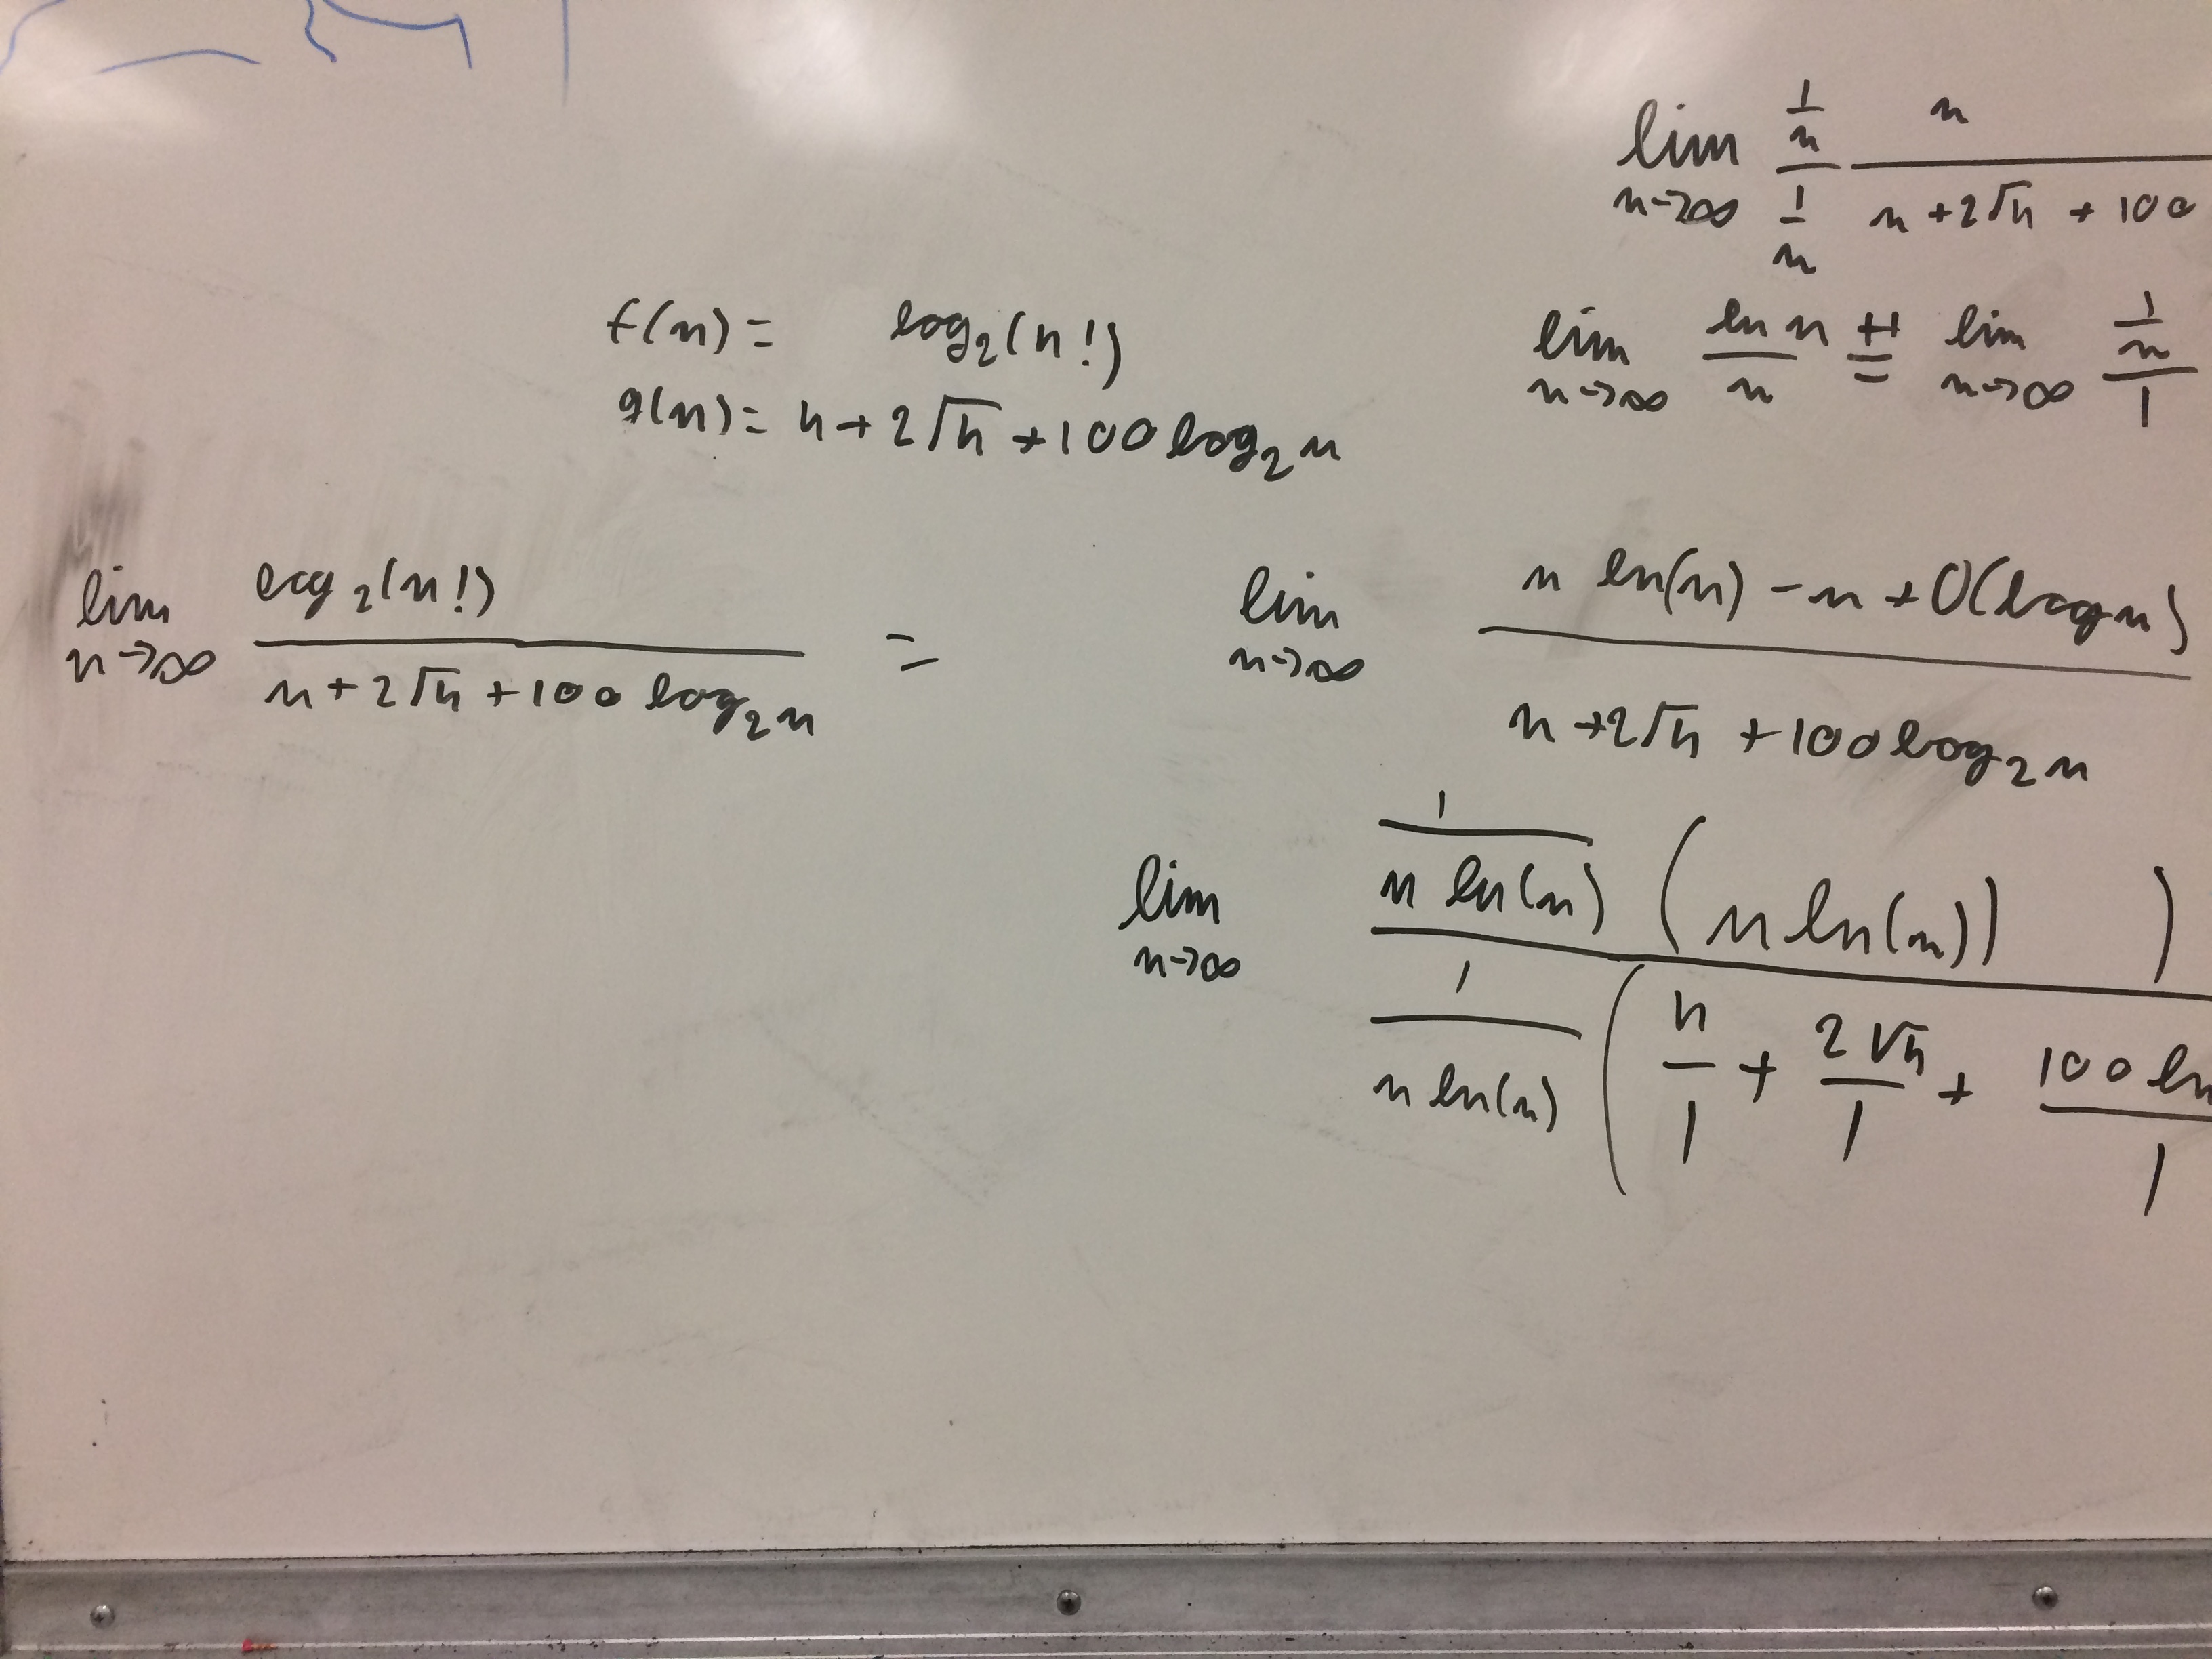 lim n→∞ (1/n)/(1/n) n/(n + 2√n + 100
f(n) = log₂(n!)
lim n→∞ (ln n)/n =H lim n→∞ (1/n)/1
g(n) = n + 2√n + 100 log₂ n
lim n→∞ log₂(n!)/(n + 2√n + 100 log₂ n) = lim n→∞ (n ln(n) - n + O(log n))/(n + 2√n + 100 log₂ n)
lim n→∞ (1/(n ln(n)) (n ln(n)) ))/(1/(n ln(n)) (n/1 + 2√n/1 + 100 ln/1